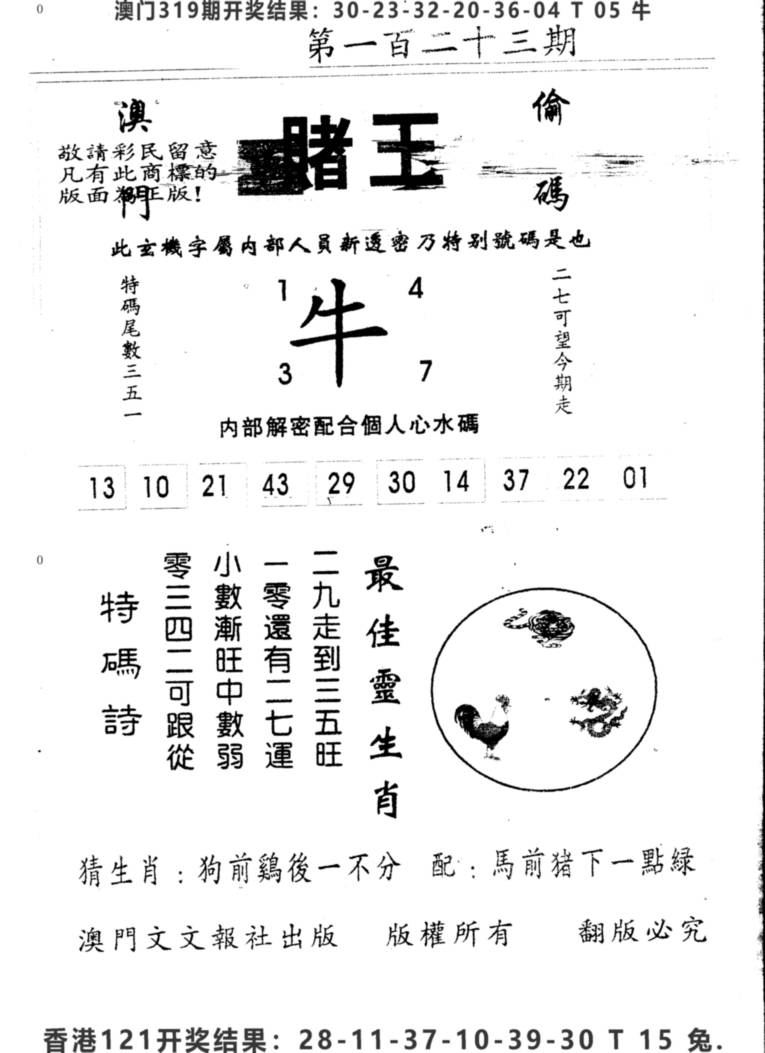 澳门319期开奖结果：30-23-32-20-36-04 T 05 牛
第一百二十三期
澳門
敬請彩民留意
凡有此商標的
版面為正版！
賭王
偷碼
此玄機字屬内部人員新透密乃特别號碼是也
特碼尾數三五一
1 4
牛
3 7
二七可望今期走
内部解密配合個人心水碼
13 10 21 43 29 30 14 37 22 01
最佳靈生肖
二九走到三五旺
一零還有二七運
小數漸旺中數弱
零三四二可跟從
特碼詩
猜生肖：狗前鷄後一不分 配：馬前猪下一點緑
澳門文文報社出版 版權所有 翻版必究
香港121开奖结果：28-11-37-10-39-30 T 15 兔.